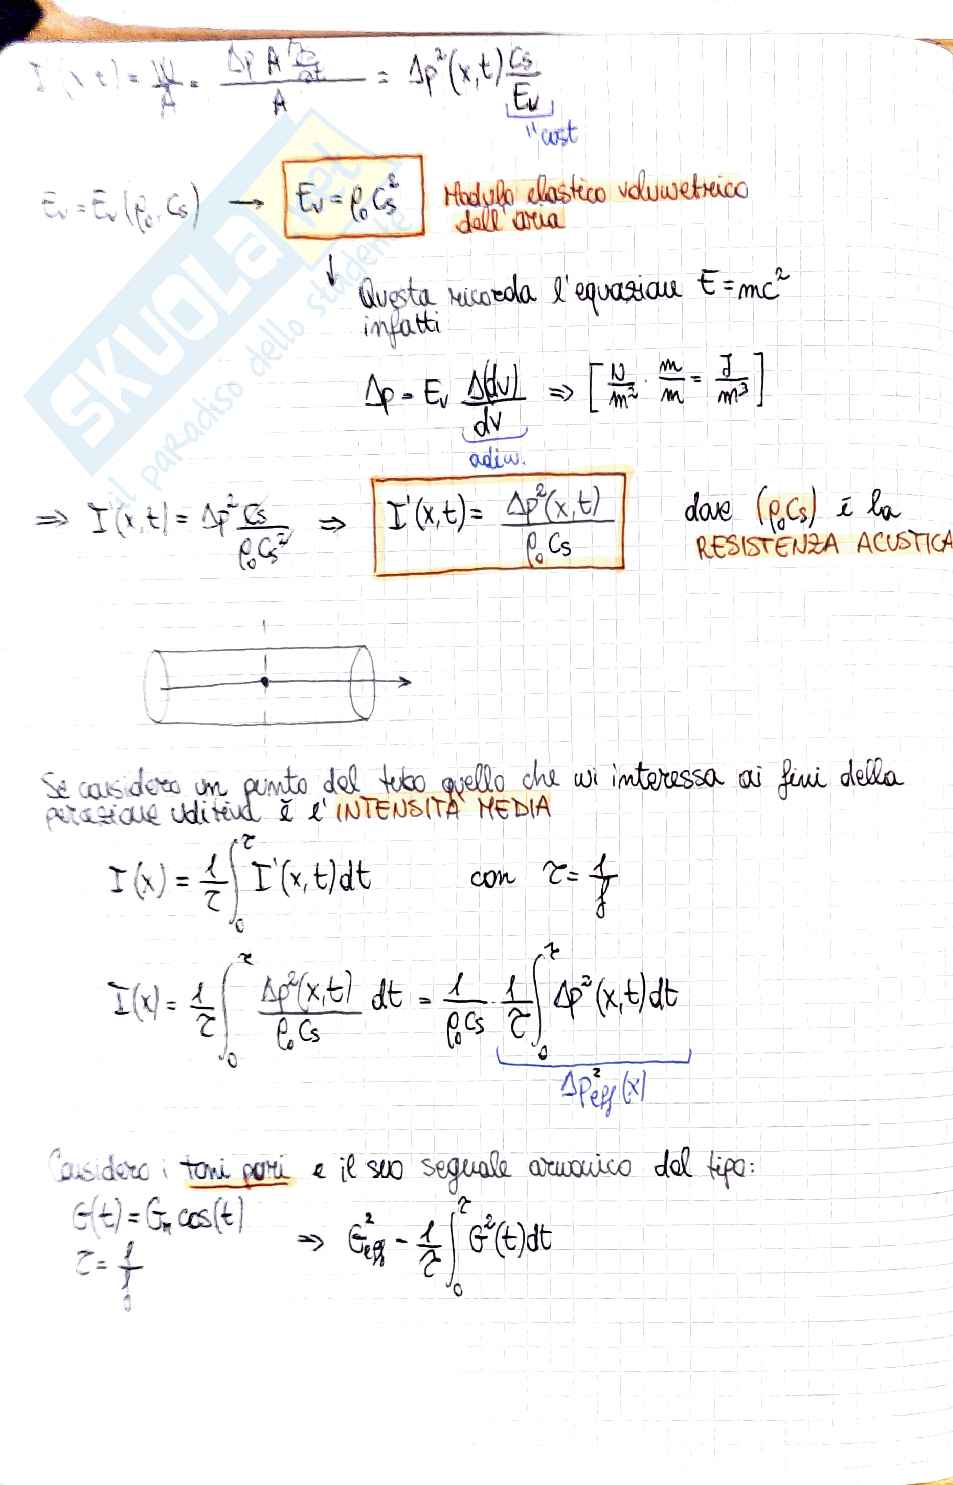 I'(x,t) = W/A = Δp A / A = Δp²(x,t) Cs/Ev
"cost
Ev = Ev(ρ₀, Cs) → Ev = ρ₀ Cs² Modulo elastico volumetrico
dell'aria
↓ Questa ricorda l'equazione E = mc²
infatti
Δp = Ev Δ(dv)/dv ⇒ [N/m² · m/m = J/m³]
adim.
⇒ I'(x,t) = Δp² Cs/ρ₀Cs² ⇒ I'(x,t) = Δp²(x,t)/ρ₀Cs dove (ρ₀Cs) è la
RESISTENZA ACUSTICA
Se considero un punto del tubo quello che mi interessa ai fini della
percezione uditiva è l'INTENSITÀ MEDIA
I(x) = 1/τ ∫₀^τ I'(x,t)dt con τ = 1/f
I(x) = 1/τ ∫₀^τ Δp²(x,t)/ρ₀Cs dt = 1/ρ₀Cs · 1/τ ∫₀^τ Δp²(x,t)dt
Δp²eff(x)
Considero i toni puri e il suo segnale armonico del tipo:
G(t) = Gm cos(t)
τ = 1/f
⇒ G²eff = 1/τ ∫₀^τ G²(t)dt
SKUOLA.net
il paradiso dello studente